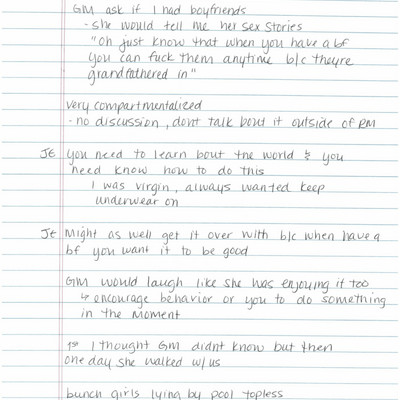 GM ask if I had boyfriends
- she would tell me her sex stories
"Oh just know that when you have a bf
you can fuck them anytime b/c theyre
grandfathered in"
very compartmentalized
- no discussion, dont talk bout it outside of RM
JE you need to learn bout the world & you
need know how to do this
I was virgin, always wanted keep
underwear on
JE Might as well get it over with b/c when have a
bf you want it to be good
GM would laugh like she was enjoying it too
↳ encourage behavior or you to do something
in the moment
1st I thought GM didnt know but then
one day she walked w/us
bunch girls lying by pool topless